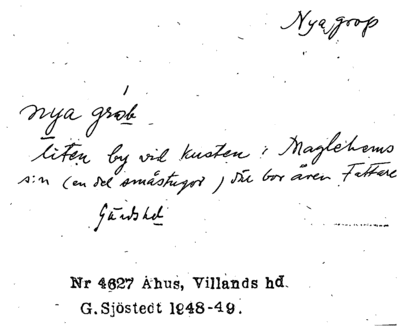 Nya grop
nya gráb
liten by vid kusten i Maglehems
s:n (en del småstugor) där bor även Tattare
Gärds hd
Nr 4627 Åhus, Villands hd.
G. Sjöstedt 1948-49.